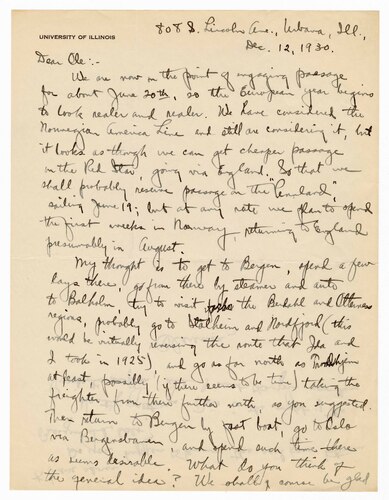 UNIVERSITY OF ILLINOIS
808 S. Lincoln Ave., Urbana, Ill.,
Dec. 12, 1930.
Dear Ole:-
We are now on the point of engaging passage
for about June 20th, so the European year begins
to look nearer and nearer. We have considered the
Norwegian America Line and still are considering it, but
it looks as though we can get cheaper passage
on the Red Star, going via England. So that we
shall probably reserve passage on the "Pennland",
sailing June 19; but at any rate we plan to spend
the first weeks in Norway, returning to England
presumably in August.
My thought is to get to Bergen, spend a few
days there, go from there by steamer and auto
to Balholm, try to visit the and
regions, probably go to Stalheim and Nordfjord (this
would be virtually reversing the route that Jea and
I took in 1925) and go as far north as Trondhjem
at least, possibly (if there seems to be time) taking the
freighter from there further north, as you suggested.
Then return to Bergen by fast boat, go to Oslo
via Bergensbanen, and spend such time there
as seems desirable. What do you think of
the general idea? We shall of course be glad